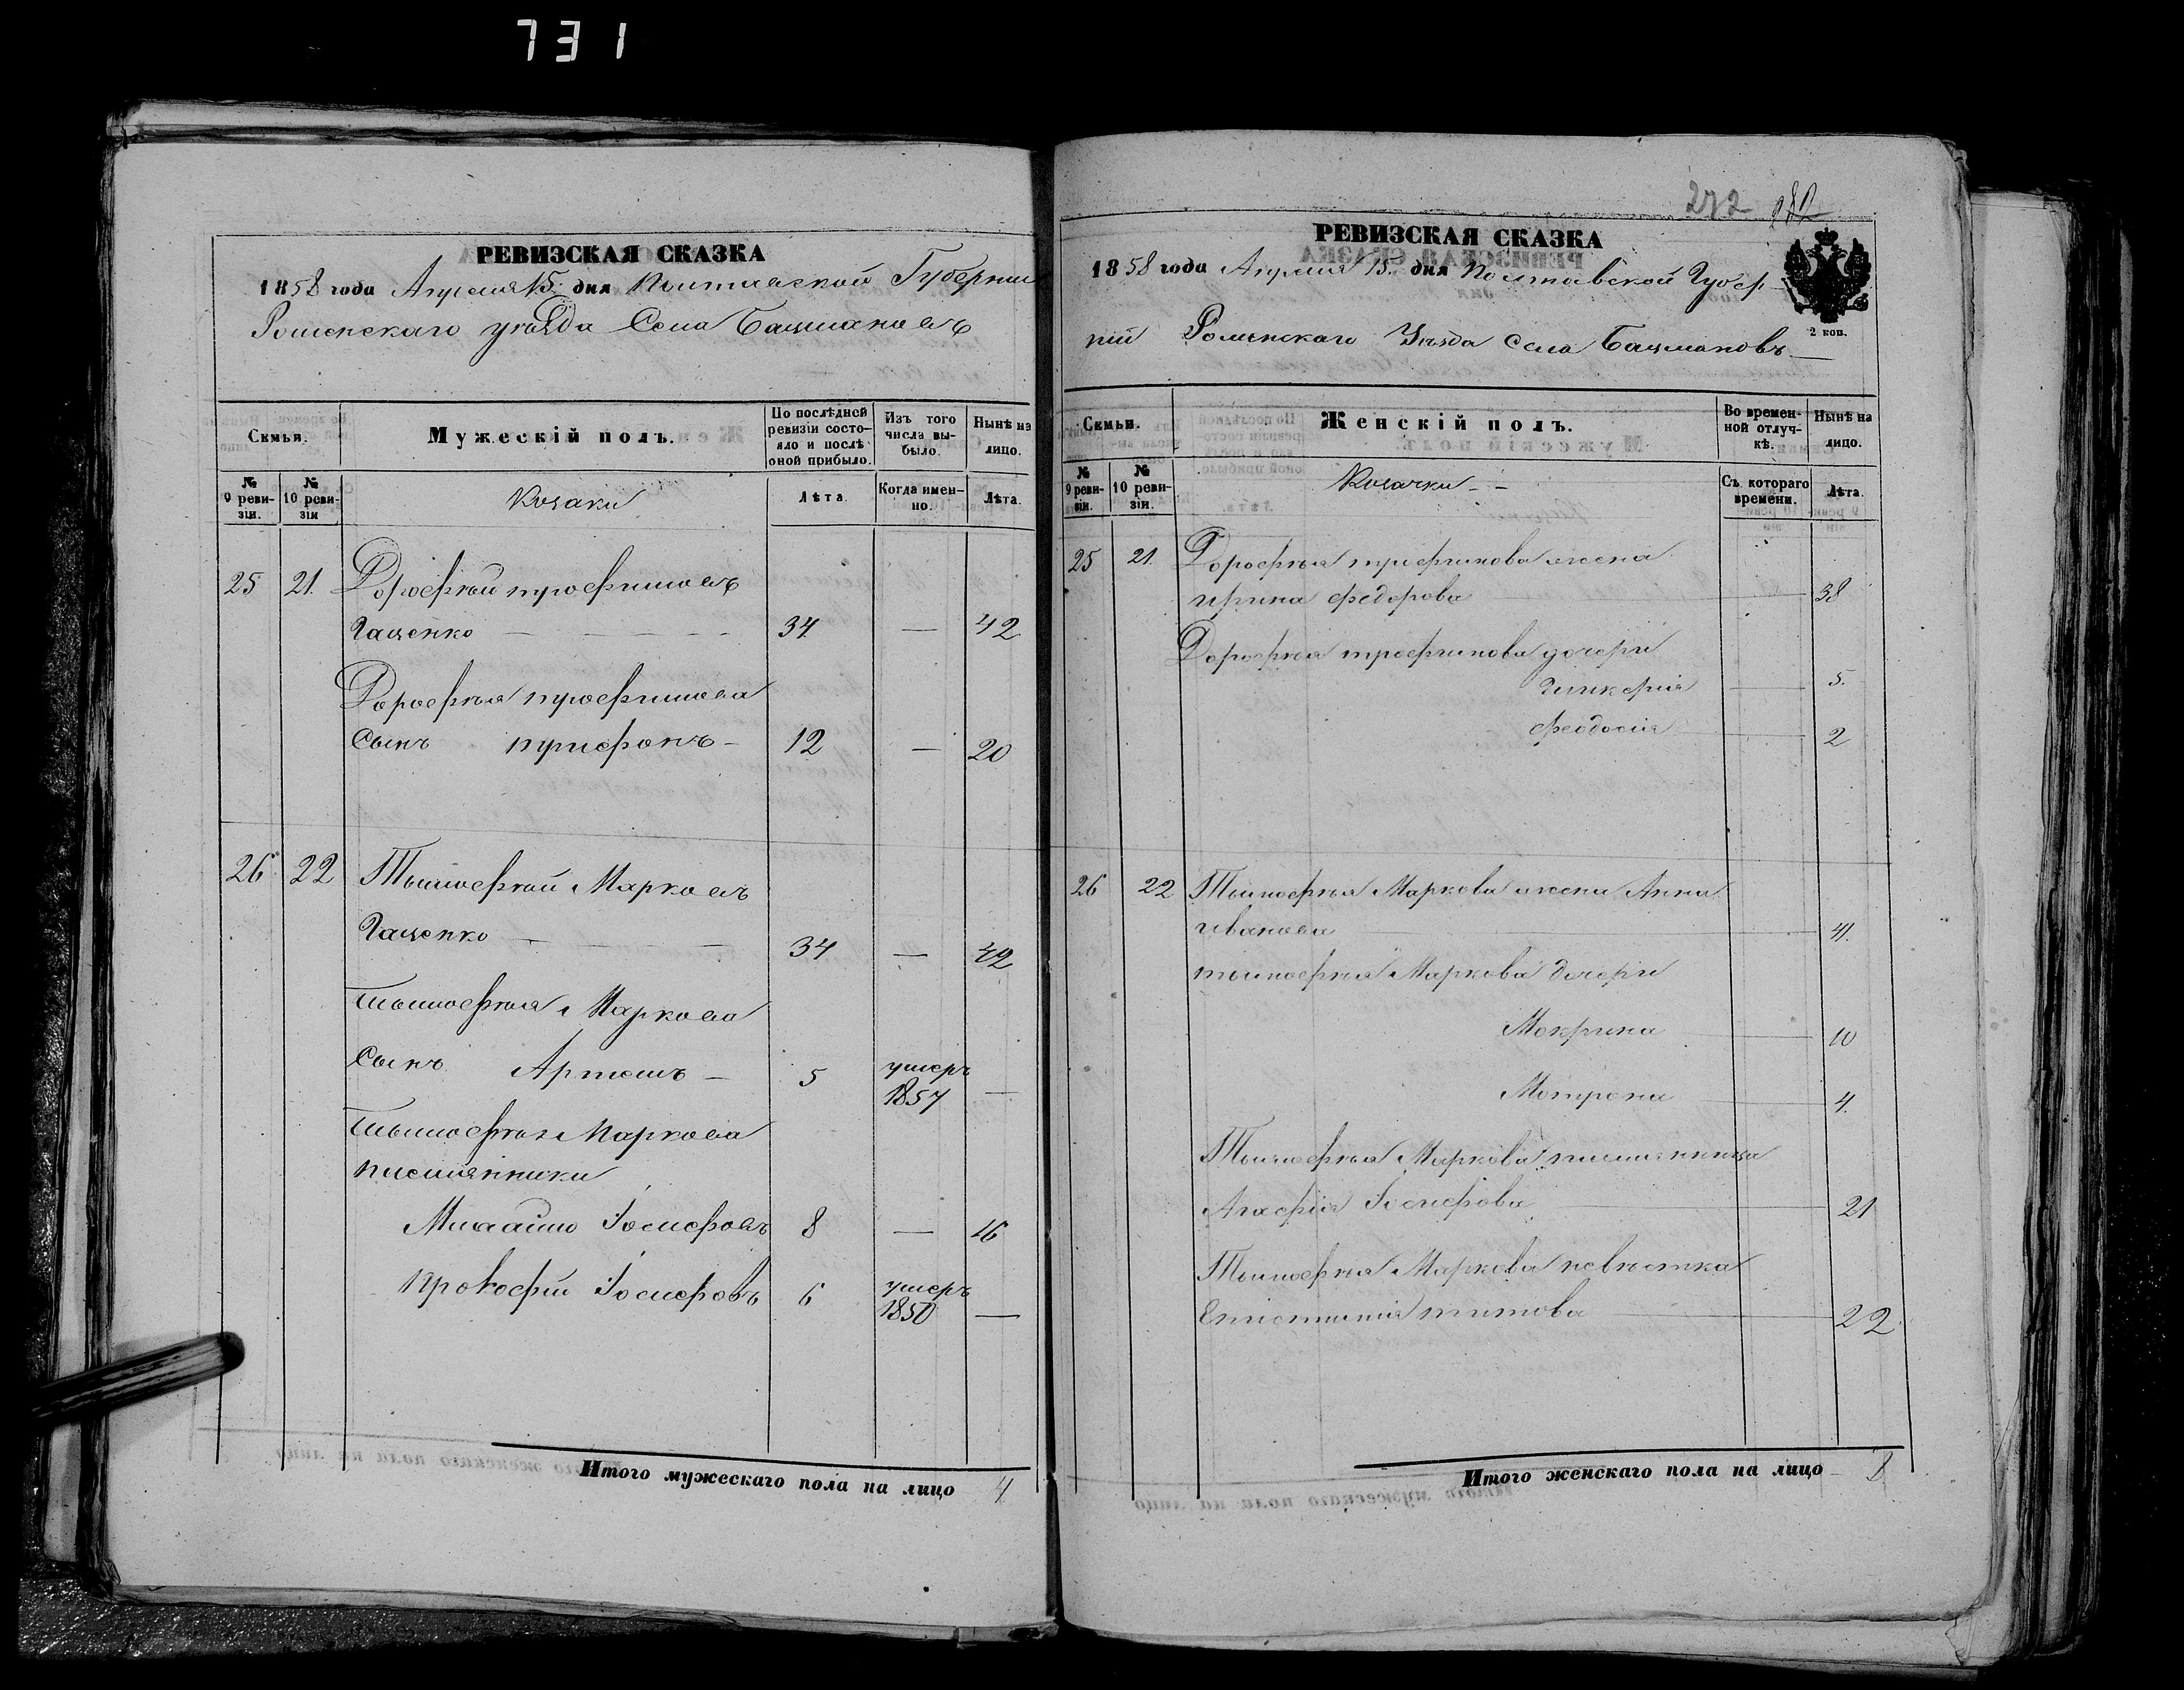 731
РЕВИЗСКАЯ СКАЗКА
1858 года Апреля 15 дня Полтавской Губернии
Роменскаго уезда Села Бацмановъ
Семьи.
Мужескій полъ.
По послѣдней ревизіи состояло и послѣ оной прибыло.
Изъ того числа выбыло.
Нынѣ на лицо.
№ 9 ревизіи.
№ 10 ревизіи
Козаки
Лѣта.
Когда именно.
Лѣта.
25 21. Дорофѣй трофимовъ
Гаценко 34 — 42
Дорофѣя трофимова
Сынъ трифонъ 12 — 20
26 22 Тымофѣй Марковъ
Гаценко 34 — 42
тымофѣя Маркова
Сынъ Артемъ 5 умеръ 1857 —
тымофѣя Маркова
племянники
Михайло Іосифовъ 8 — 16
Прокофій Іосифовъ 6 умеръ 1850 —
Итого мужескаго пола на лицо 4
272 282
РЕВИЗСКАЯ СКАЗКА
1858 года Апреля 15 дня Полтавской Губер-
ніи Роменскаго Уѣзда Села Бацмановъ
2 коп.
Семьи.
Женскій полъ.
Во временной отлучкѣ.
Нынѣ на лицо.
№ 9 ревизіи.
№ 10 ревизіи.
Козачки
Съ котораго времени.
Лѣта.
25 21. Дорофѣя трофимова жена
ирина федорова 38
Дорофѣя трофимова дочери
Гликерія 5.
феодосія 2
26 22 Тымофѣя Маркова жена Анна
иванова 41.
тымофѣя Маркова дочери
Мокрина 10
Мотрона 4.
Тымофѣя Маркова племянница
Агафія Іосифова 21
Тымофѣя Маркова невѣстка
Епистимія титова 22
Итого женскаго пола на лицо 8